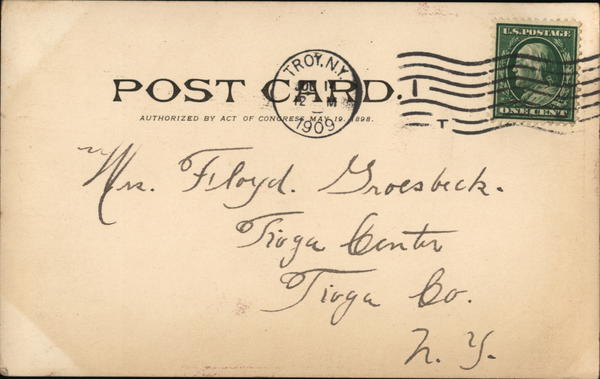 U.S. POSTAGE
ONE CENT
TROY, N.Y.
1
12 M
1909
POST CARD.
1
T
AUTHORIZED BY ACT OF CONGRESS MAY 19, 1898.
Mrs. Floyd. Groesbeck.
Tioga Center
Tioga Co.
N. Y.